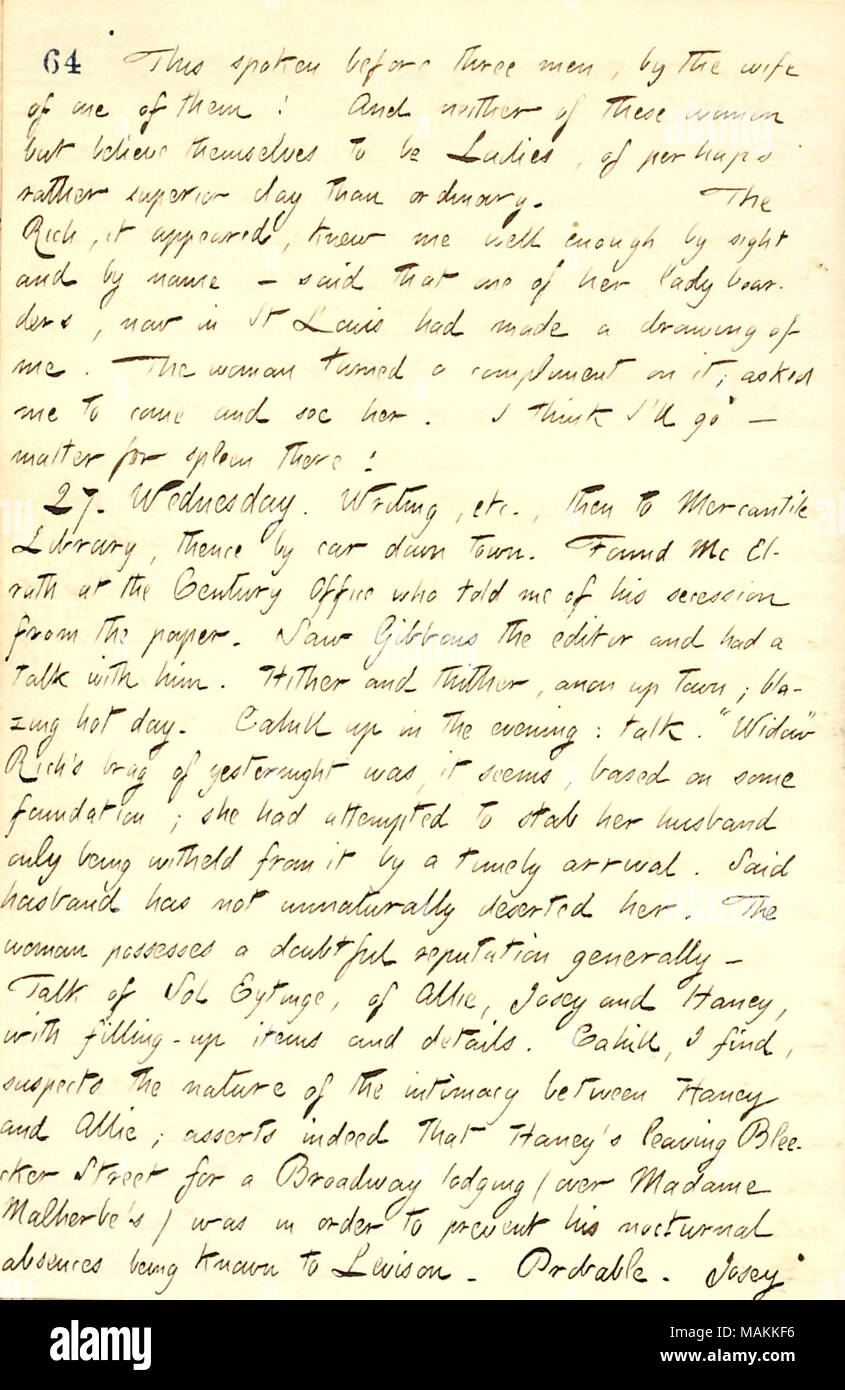 64 This spoken before three men, by the wife
of one of them! And neither of these women
but believe themselves to be Ladies, of perhaps
rather superior clay than ordinary. The
Rich, it appeared, knew me well enough by sight
and by name — said that one of her lady boar-
ders, now in St Louis had made a drawing of
me. The woman turned a compliment on it, asked
me to come and see her. I think I'll go —
matter for spleen there!
27. Wednesday. Writing, etc., then to Mercantile
Library, thence by car down town. Found Mc El-
rath at the Century Office who told me of his secession
from the paper. Saw Gibbons the editor and had a
talk with him. Hither and thither, anon up town; bla-
zing hot day. Cahill up in the evening: talk. "Widow"
Rich's brag of yesternight was, it seems, based on some
foundation; she had attempted to stab her husband
only being witheld from it by a timely arrival. Said
husband has not unnaturally deserted her. The
woman possesses a doubtful reputation generally —
Talk of Sol Eytinge, of Allie, Josey and Haney,
with filling-up items and details. Cahill, I find,
suspects the nature of the intimacy between Haney
and Allie; asserts indeed that Haney's leaving Blee-
cker Street for a Broadway lodging (over Madame
Malherbe's) was in order to prevent his nocturnal
absences being known to Levison. Probable. Josey
alamy
Image ID: MAKKF6
www.alamy.com